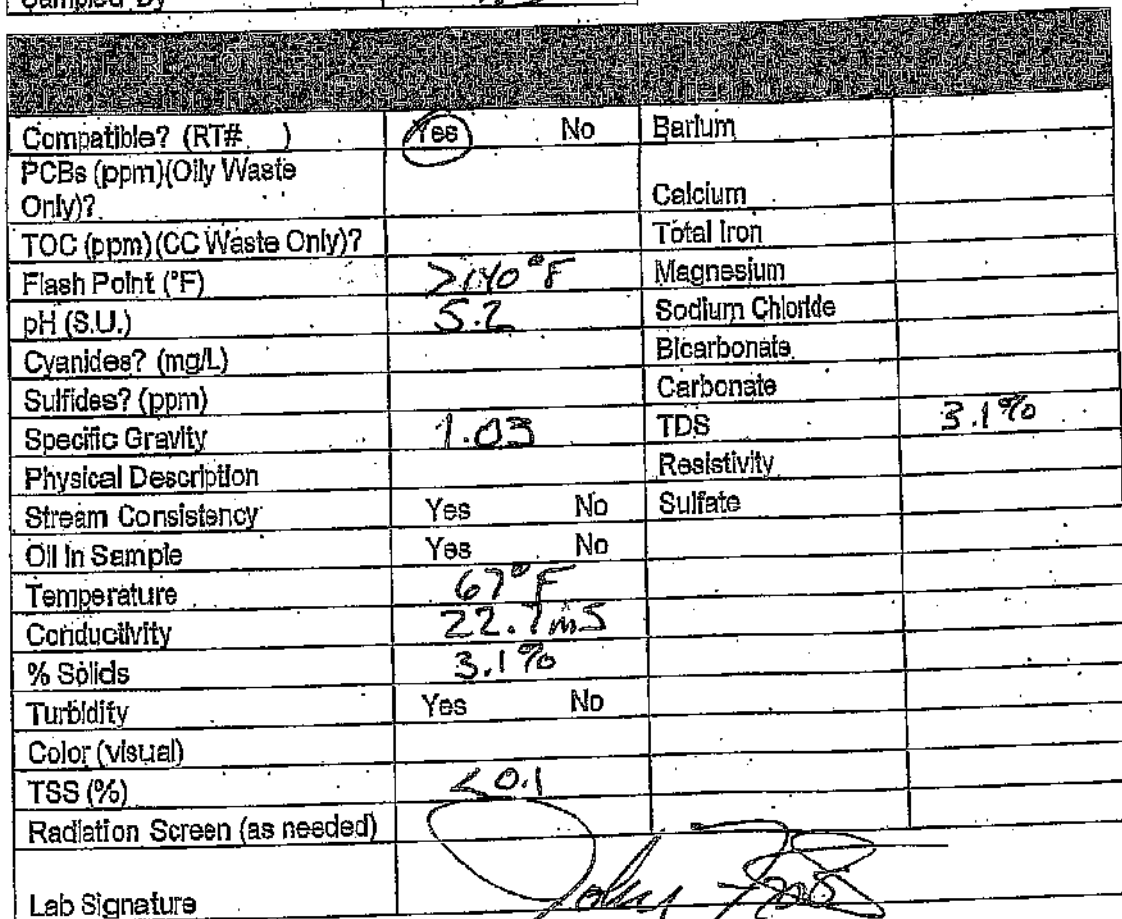 Sampled By
Compatible? (RT# ) Yes No Barium
PCBs (ppm)(Oily Waste
Only)? Calcium
TOC (ppm)(CC Waste Only)? Total Iron
Flash Point (°F) >140°F Magnesium
pH (S.U.) 5.2 Sodium Chloride
Cyanides? (mg/L) Bicarbonate
Sulfides? (ppm) Carbonate
Specific Gravity 1.03 TDS 3.1%
Physical Description Resistivity
Stream Consistency Yes No Sulfate
Oil In Sample Yes No
Temperature 67°F
Conductivity 22.7mS
% Solids 3.1%
Turbidity Yes No
Color (visual)
TSS (%) <0.1
Radiation Screen (as needed)
Lab Signature